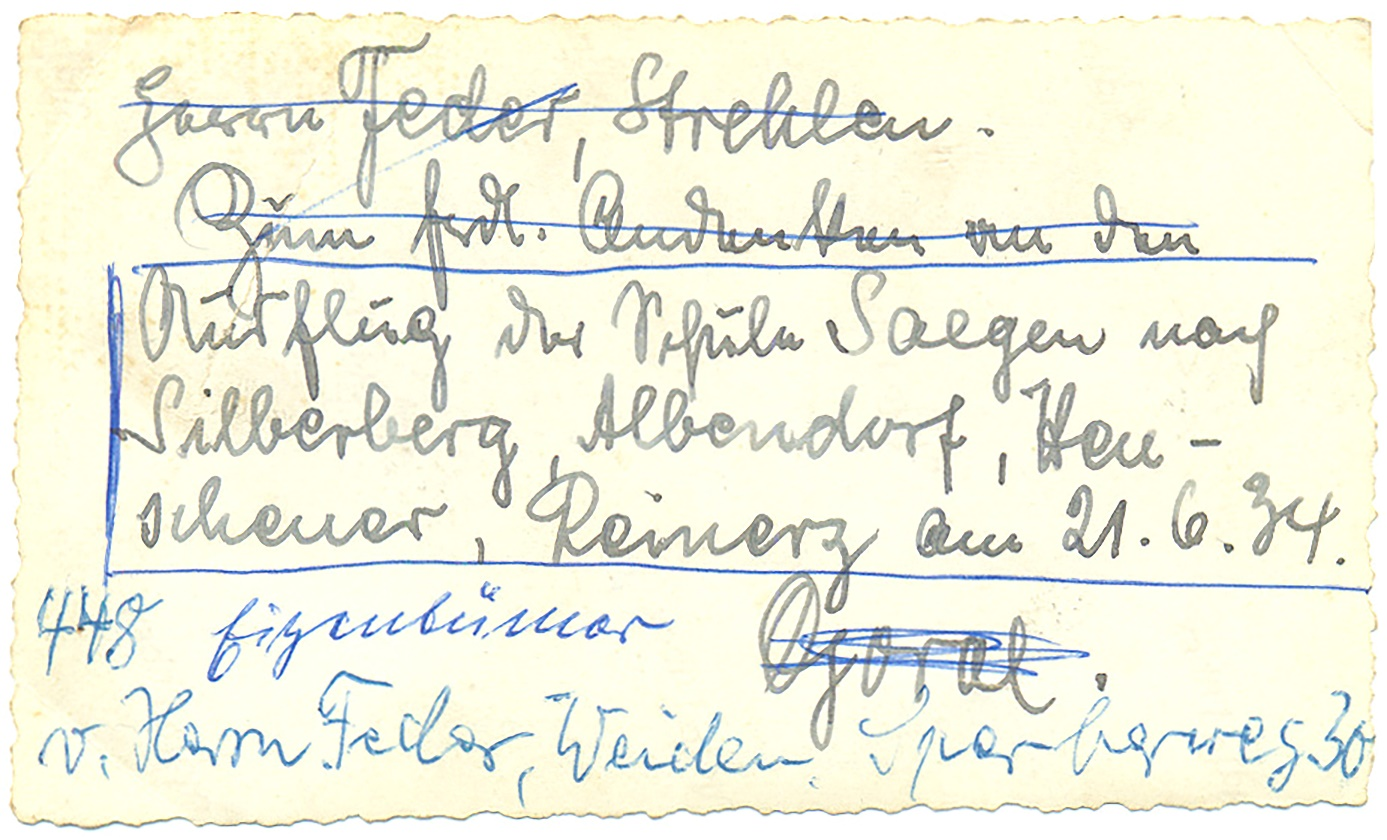 Herrn Feder, Strehlen.
Zum frdl. Andenken an den
Ausflug der Schule Saegen nach
Silberberg, Albendorf, Heu-
scheuer, Reinerz am 21.6.34.
448 Eigentümer Ogoral.
v. Herrn Feder, Weiden, Sperberweg 30